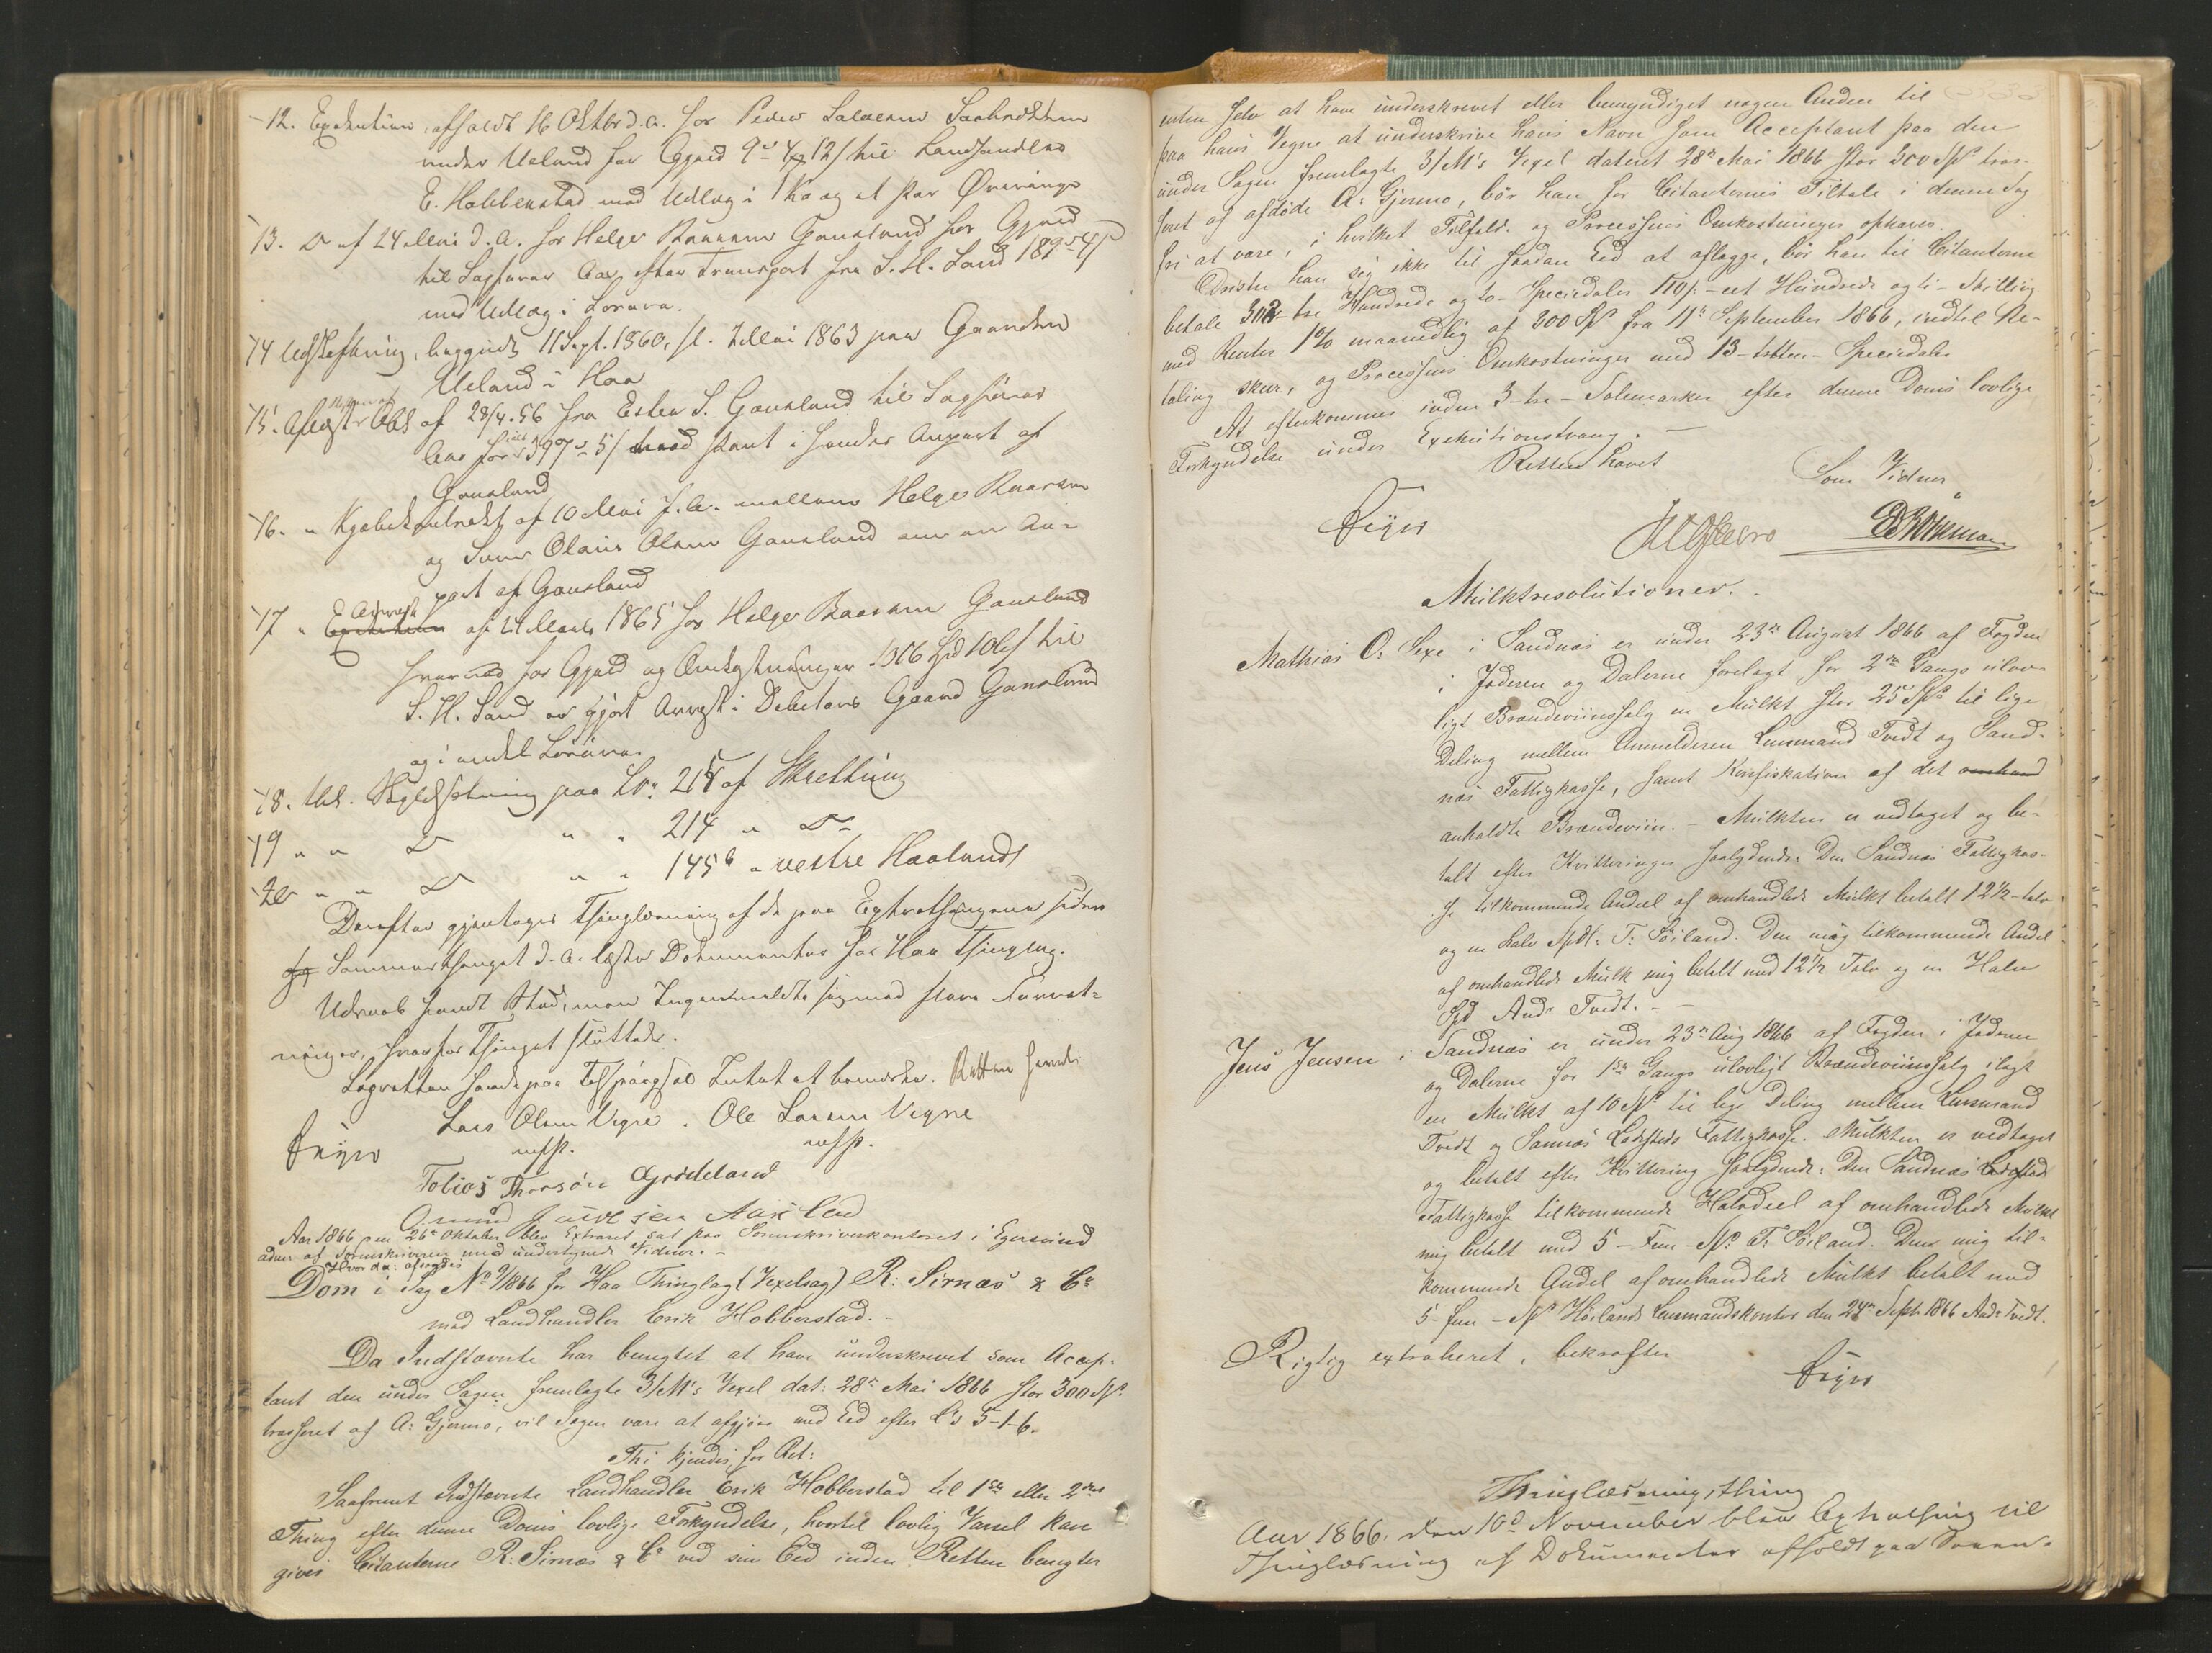 12. Execution, afholdt 16 Oktbr d. A. hos Peder Salvesen
under Ueland for Gjæld 9 12/ til Landhandler
E. Hobberstad med Udlæg i 1 Ko og et par
13. D af 24 Mai d. A. hos Helge Rasmusen Gausland for Gjæld
til Sagfører Aas efter Transport fra S. H. Sand 189
med Udlæg i Løsøre.
14 Udskiftning, begyndt 11 Sept. 1860, sl. Mai 1863 paa Gaarden
Ueland i Haa
15. Aflæst Obl af 28/4. 56 fra Esten S. Gausland til Sagfører
Aas for 397 5/ med pant i Anpart af
Gausland
16. " Kjøbekontrakt af 10 Mai f. A. mellem Helge Rasmusen
og Søn Olaus Olsen Gausland om en An-
part af Gausland
17 " Arrest af 24 Marts 1865 hos Helge Rasmusen Gausland
hvorved for Gjæld og Omkostninger 106 Spd til
S. H. Sand er gjort Arrest i Debitors Gaard Gausland
og i endel Løsøre.
18. Udl. Skyldsætning paa Lb: 215 af Skretting
19 " " D " " 214 " D
20 " " D " " 145b " vestre Haaland
Derefter gjentages Thinglæsning af de paa Extrathingene siden
Sommerthinget d. A. læste Dokumenter for Haa Thinglag.
Udraab fandt Sted, men Ingen meldte sig med flere Forret-
ninger, hvorfor Thinget sluttedes.
Lagretten havde paa Tilspørgsel Intet at bemærke. Retten hævet
Feyer
Lars Olsen Vigre. Ole Larsen Vigre
Tobias Thorsön Grödeland
Aar 1866 den 26de Oktober blev Extraret sat paa Sorenskriverkontoret i Egersund
af Sorenskriveren med undertegnede Vidner. -
Hvor da: afsagdes
Dom i Sag No 9/1866 for Haa Thinglag (Vexelsag) R. Sirnæs & Co
mod Landhandler Erik Hobberstad. -
Da Indstævnte har benegtet at have underskrevet som Accep-
tant den under Sagen fremlagte 3/M's Vexel dat: 28de Mai 1866 stor 300 Spd
trasseret af A: Gjermo, vil Sagen være at afgjøre med Eed efter L's 5-1-6.
Thi kjendes for Ret:
Saafremt Indstævnte Landhandler Erik Hobberstad til 1ste eller 2det
Thing efter denne Doms lovlige Forkyndelse, hvortil lovlig Varsel kan
gives Citanterne R. Sirnæs & Co ved sin Eed inden Retten benegter
enten selv at have underskrevet eller bemyndiget nogen Anden til
paa hans Vegne at underskrive hans Navn som Acceptant paa den
under Sagen fremlagte 3/M's Vexel dateret 28de Mai 1866 stor 300 Spd tras-
seret af afdøde A: Gjermo, bør han for Citanternes Tiltale i denne Sag
fri at være, i hvilket Tilfælde og Processens Omkostninger ophæves.
Drister han sig ikke til saadan Eed at aflægge, bør han til Citanterne
betale 302 - tre Hundrede og to - Speciedaler 110/: - eet Hundrede og ti - Skilling
med Renter 1% maanedlig af 300 Spd fra 11te September 1866, indtil Be-
taling skeer, og Processens Omkostninger med 13 - tretten - Speciedaler
At efterkommes inden 3 - tre - Solemærker efter denne Doms lovlige
Forkyndelse under Exekutionstvang. -
Retten hævet
Som Vidner
Feyer
Mulktresolutioner.
Mathias O: Sexe i Sandnæs er under 23de August 1866 af Fogden
i Jæderen og Dalerne forelagt for 2den Gangs ulov-
ligt Brændeviinssalg en Mulkt stor 25 Spd til lige
Deling mellem Anmelderen Lensmand Tvedt og Sand-
næs Fattigkasse, samt Konfiskation af det omhand
anholdte Brændeviin. - Mulkten er vedtaget og be-
talt efter Kvitteringer saalydende: Den Sandnæs Fattigkas-
se tilkommende Andeel af omhandlede Mulkt betalt 12½ - tolv
og en halv Spdl. T: Söiland. Den mig tilkommende Andel
af omhandlede Mulk mig betalt med 12½ Tolv og en Halv
Spd And: Tvedt. -
Jens Jensen i Sandnæs er under 23de Aug 1866 af Fogden i Jæderen
og Dalerne for 1ste Gangs ulovligt Brændeviinssalg ilagt
en Mulkt af 10 Spd til lige Deling mellem Lensmand
Tvedt og Sannæs Ladesteds Fattigkasse. Mulkten er vedtaget
og betalt efter Kvittering saalydende: Den Sandnæs Ladesteds
Fattigkasse tilkommende Halvdeel af omhandlede Mulkt
mig betalt med 5 - Fem - Spd T: Söiland. Den mig til-
kommende Andel af omhandlede Mulkt betalt med
5 - fem - Spd Høilands Lensmandskontor den 24de Sept. 1866 And: Tvedt.
Rigtig extraheret, bekræfter
Feyer
Thinglæsningsthing
Aar 1866. den 10de November blev Extrathing til
Thinglæsning af Dokumenter afholdt paa Soren-